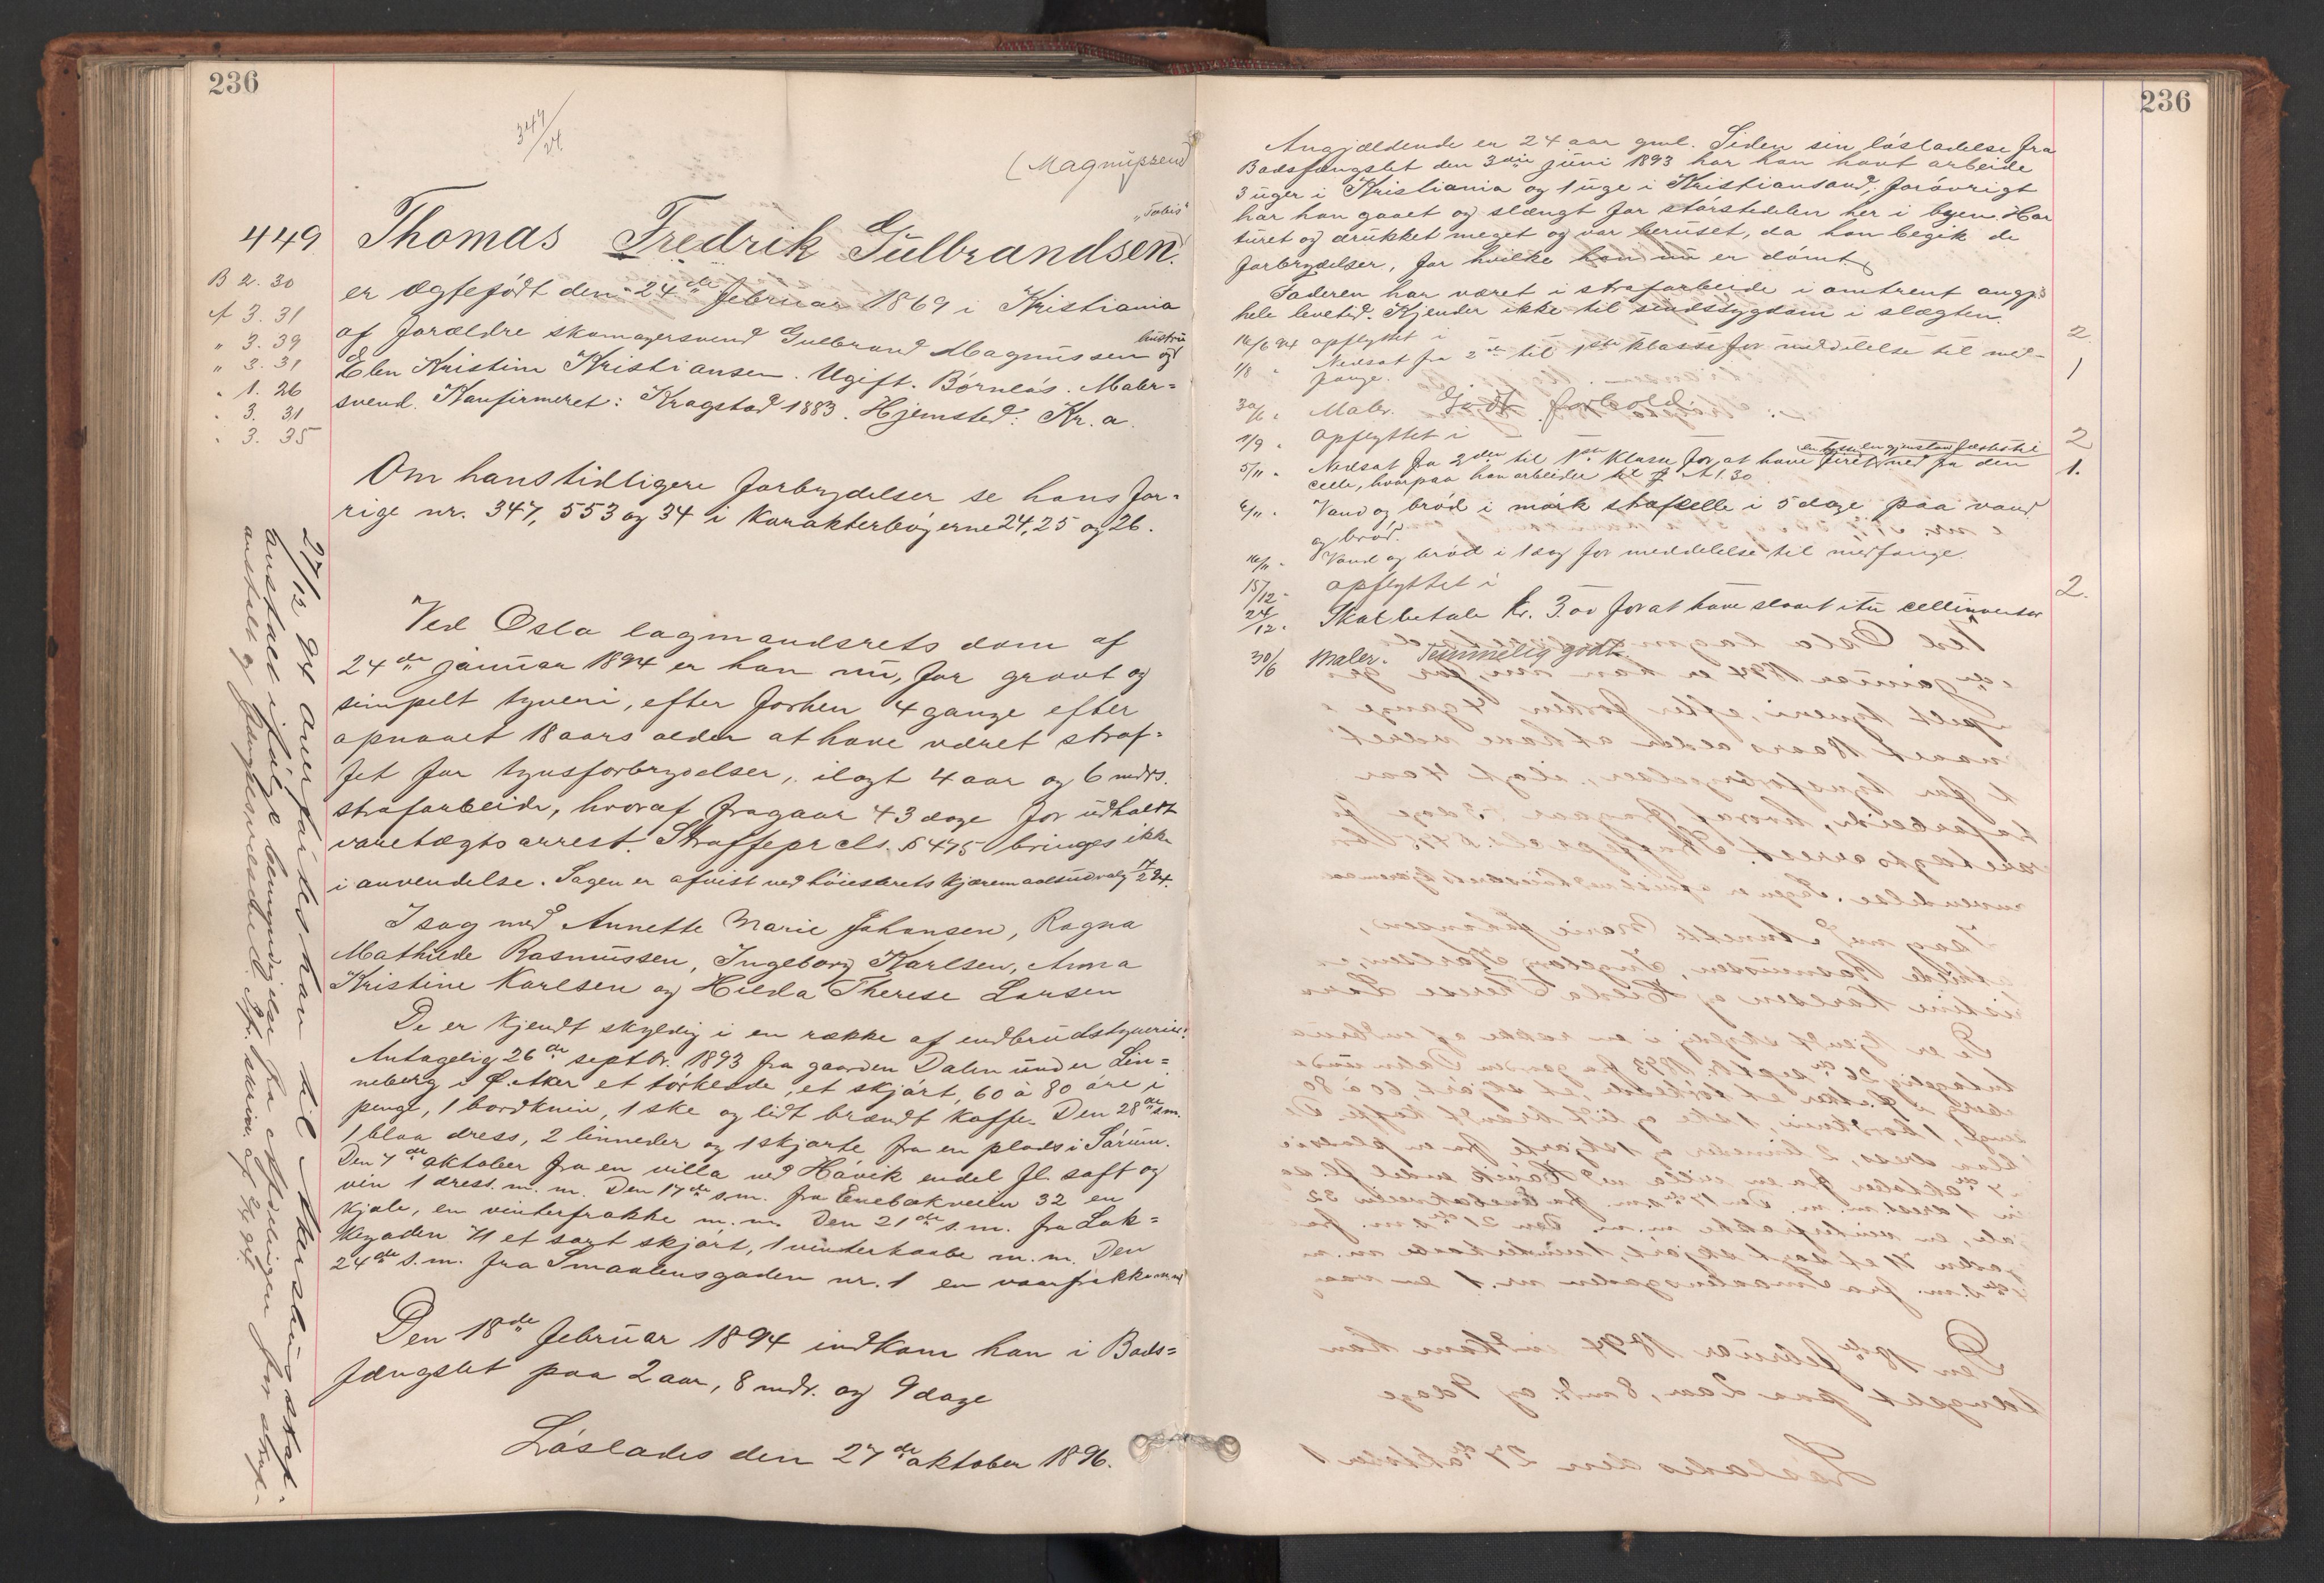 236
347/24
(Magnussen)
"Tobis"
449. Thomas Fredrik Gulbrandsen.
B 2. 30
A 3. 31
" 3. 39
" 3. 31
" 1. 26
" 3. 31
" 3. 35
er ægtefødt den 24de februar 1869 i Kristiania
af forældre skomagersvend Gulbrand Magnussen og hustru
Elen Kristine Kristiansen. Ugift. Børnløs. Maler=
svend. Konfirmeret: Kragstad 1883. Hjemsted: Kr.a.
Om hans tidligere forbrydelser se hans for=
rige nr. 347, 553 og 34 i karakterbøgerne 24, 25 og 26.
Ved Oslo lagmandsrets dom af
24de januar 1894 er han nu, for grovt og
simpelt tyveri, efter forhen 4 gange efter
opnaaet 18 aars alder at have været straf=
fet for tyvsforbrydelser, ilagt 4 aar og 6 mdrs.
strafarbeide, hvoraf fragaar 43 dage for udholdt
varetægtsarrest. Straffeprcls. § 475 bringes ikke
i anvendelse. Sagen er afvist ved høiesterets kjæremaalsudvalg 17/2 94.
I sag med Annette Marie Johansen, Ragna
Mathilde Rasmussen, Ingeborg Karlsen, Anna
Kristine Karlsen og Hilda Therese Larsen
De er kjendt skyldig i en række af indbrudstyverier:
Antagelig 26de septbr. 1893 fra gaarden Dalen under Lin=
neberg i Ø. Aker et tørklæde, et skjørt, 60 à 80 øre i
penge, 1 bordkniv, 1 ske og lidt brændt kaffe. Den 28de s.m.
1 blaa dress, 2 linneder og 1 skjorte fra en plads i Sørum.
Den 7de oktober fra en villa ved Høvik endel fl. saft og
vin 1 dress. m. m. Den 17de s.m. fra Enebakveien 32 en
kjole, en vinterfrakke m. m. Den 21de s.m. fra Lak=
kegaden 71 et sort skjørt, 1 vinterkaabe m. m. Den
24de s.m. fra Smaalensgaden nr. 1 en vaarfrakke m.m.
Den 18de februar 1894 indkom han i Bods=
fængslet paa 2 aar, 8 mdr. og 9 dage
Løslades den 27de oktober 1896.
27/12 94 overførtes han til Akershus straf=
anstalt ifølge bemyndigelse fra afdelingen for straf=
anstalt og
236
Angjældende er 24 aar gml. Siden sin løsladelse fra
Bodsfængslet den 3die juni 1893 har han havt arbeide
3 uger i Kristiania og 1 uge i Kristiansand; forøvrigt
har han gaaet og slængt for størstedelen her i byen. Har
turet og drukket meget og var beruset, da han begik de
forbrydelser, for hvilke han nu er dømt.
Faderen har været i strafarbeide i omtrent angj.s
hele levetid. Kjender ikke til sindssygdom i slægten.
16/6 94 opflyttet i 2.
1/8 " Nedsat fra 2den til 1ste klasse for meddelelse til med= 1
fange.
30/6 " Maler. Godt forhold.
1/9 " opflyttet i 2
5/11 " Nedsat fra 2den til 1ste klasse for at have firet ned fra den 1.
celle, hvorpaa han arbeider til A 1.30
6/11 " Vand og brød i mørk strafcelle i 5 dage paa vand
og brød.
14/11 " Vand og brød i 1 dag for meddelelse til medfange.
15/12 " opflyttet i 2.
24/12 " Skal betale kr. 3.00 for at have slaaet itu celleinventar
30/6 Maler. Temmelig godt